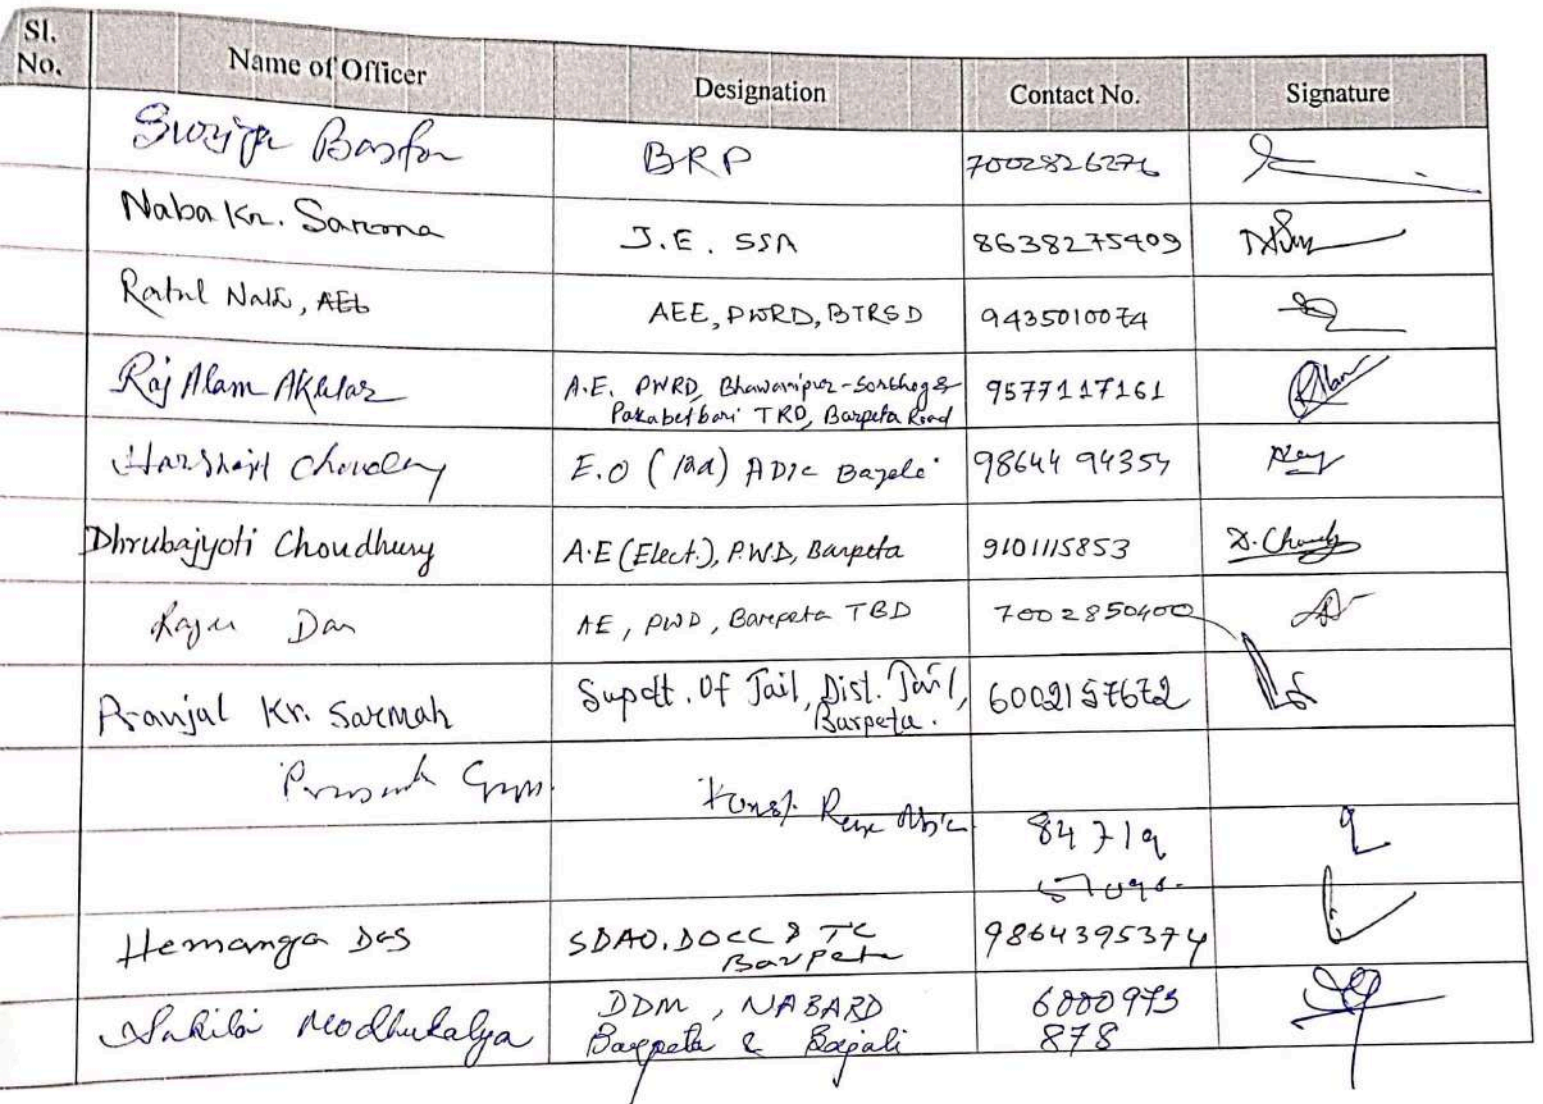 Sl. No. Name of Officer Designation Contact No. Signature
BRP 7002826276
Naba Kr. Sarma J.E. SSA 8638275409
Ratul Nath, AEE AEE, PWRD, BTRSD 9435010074
Raj Alam Akhtar A.E. PWRD, Bhawanipur-Sorbhog &
Pakabetbari TRD, Barpeta Road 9577117161
Choudhury E.O ADIC 98644 94354
Dhrubajyoti Choudhury A.E (Elect.), P.W.D, Barpeta 9101115853 D. Choudhury
Das AE, PWD, Barpeta TBD 7002850400
Pranjal Kr. Sarmah Supdt. Of Jail, Dist. Jail,
Barpeta. 6002157672
84719
Hemanga Das SDAO, DOCC & TC
Barpeta 9864395374
Modhukalya DDM, NABARD
Barpeta & Bajali
6000973
878